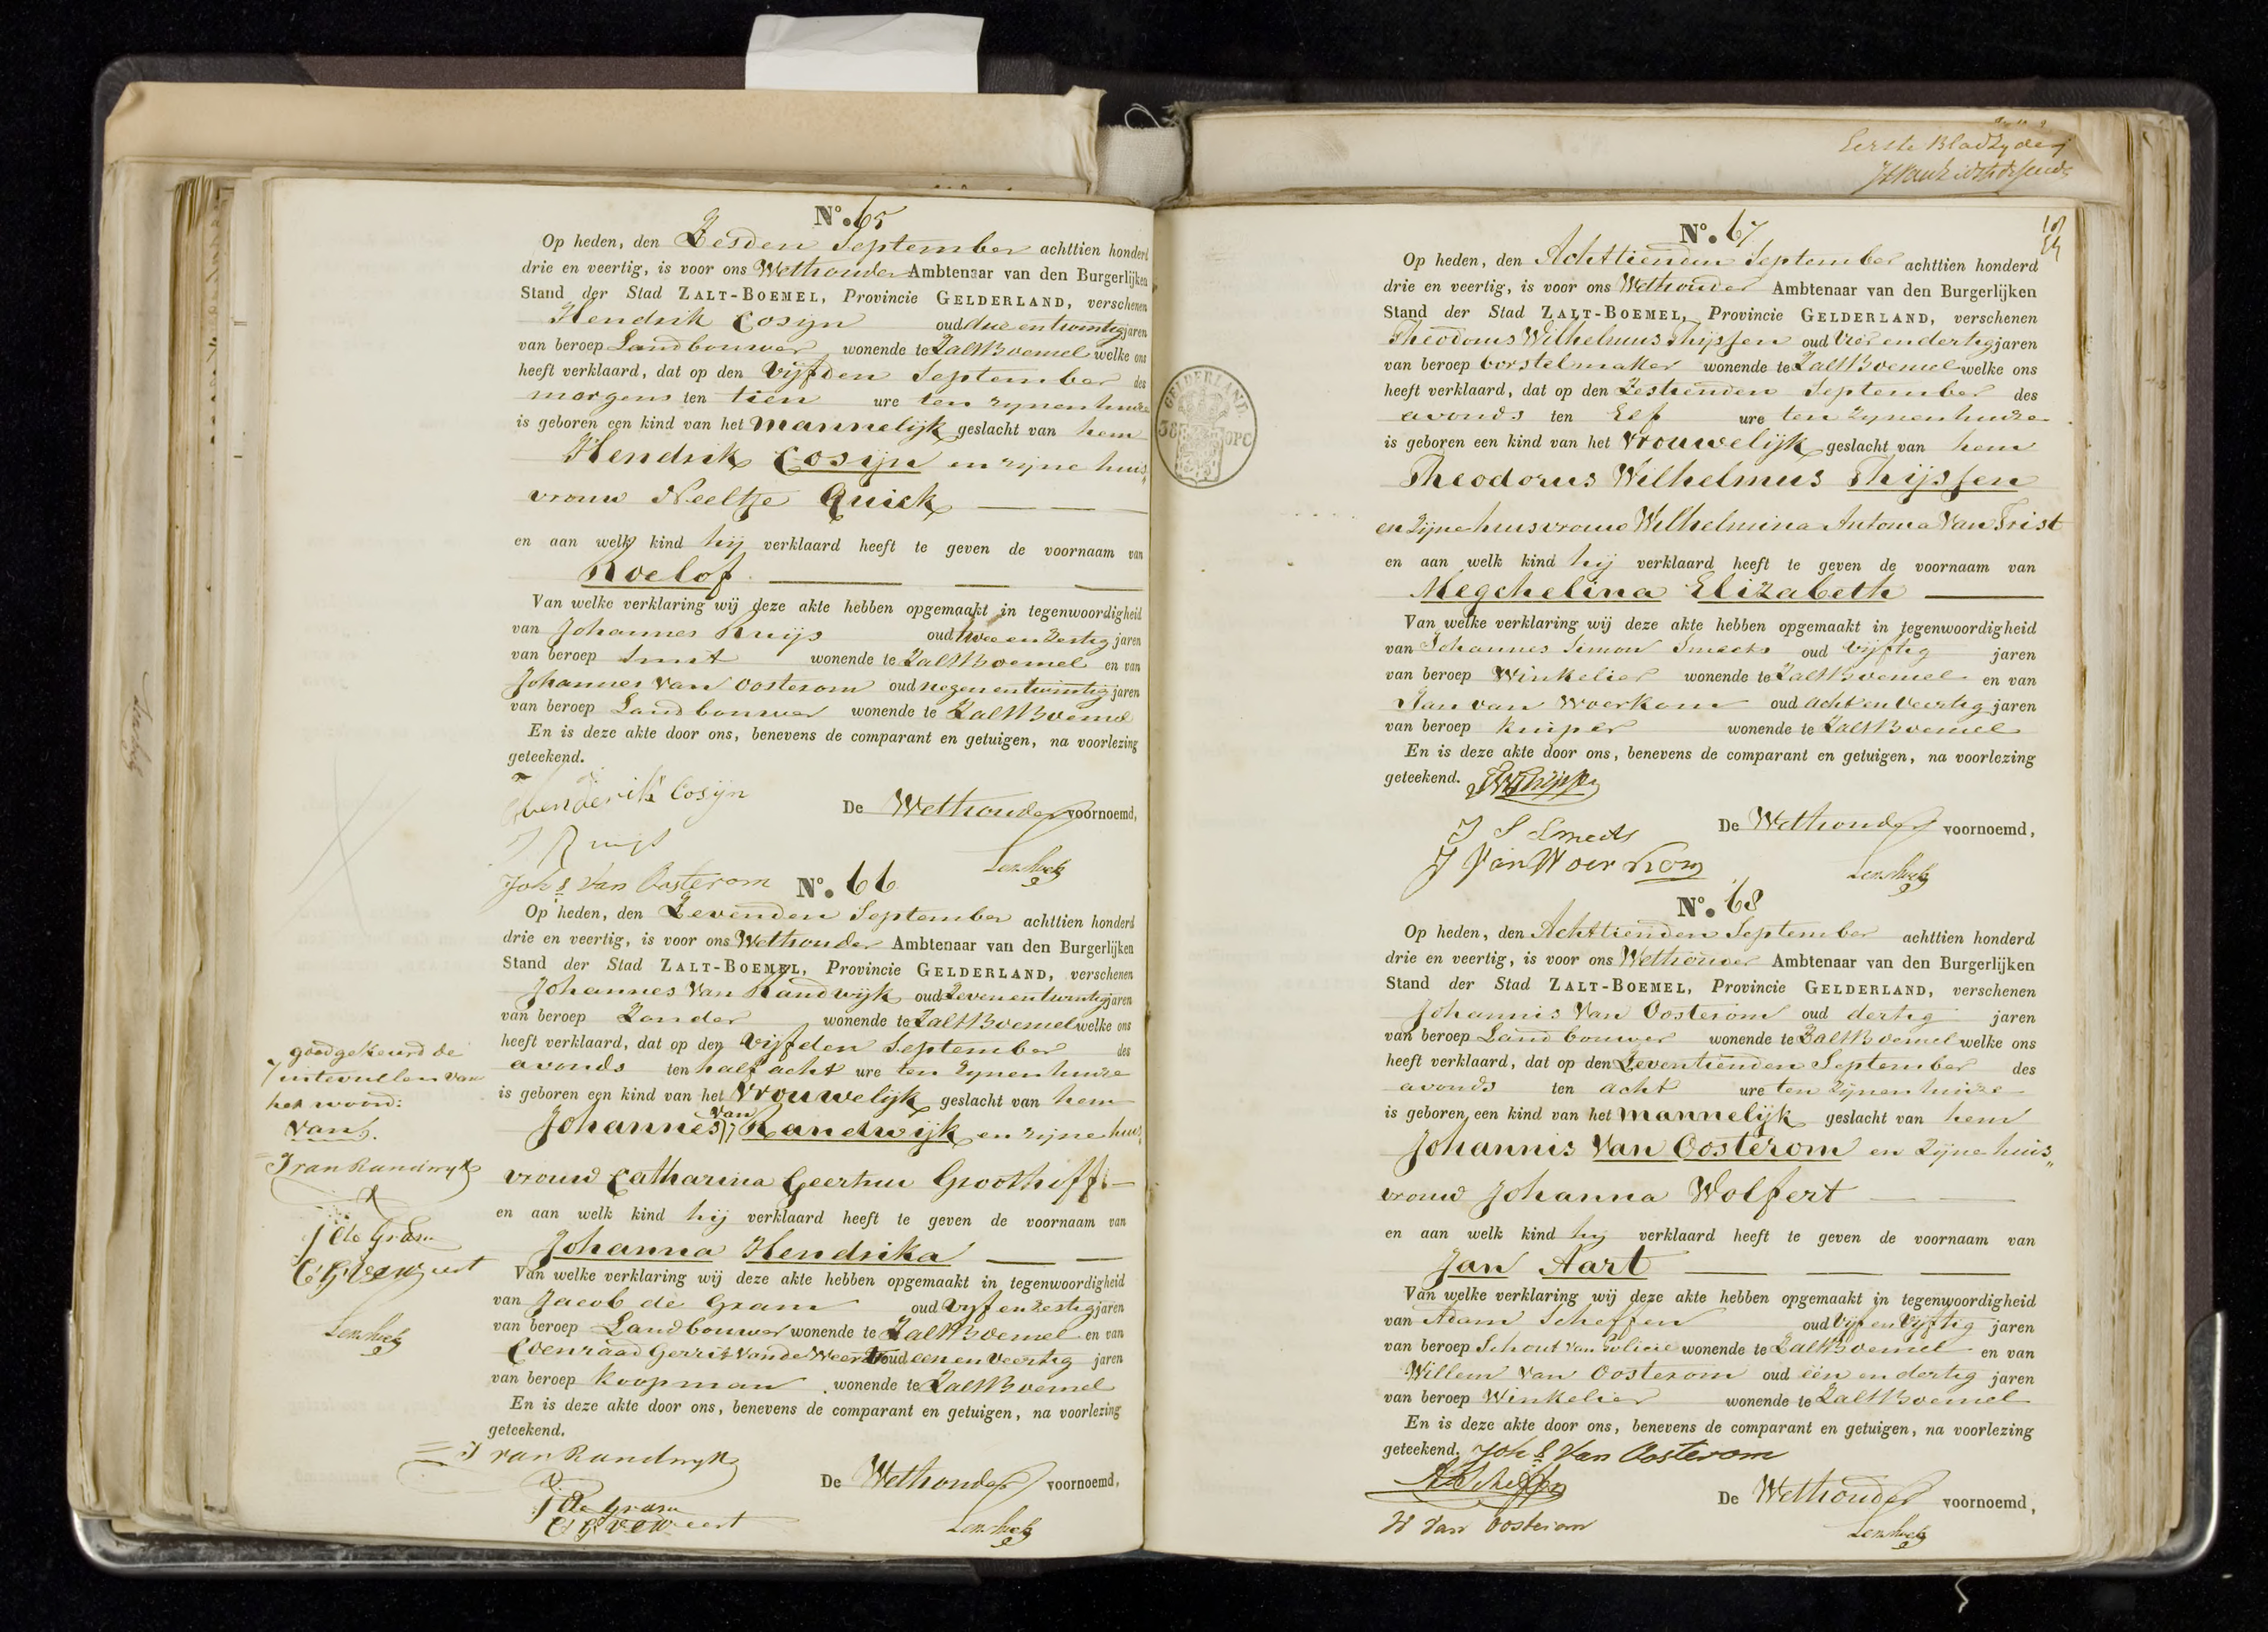 Eerste Bladzyde
N°. 65
Op heden, den Zesden September achttien honderd
drie en veertig, is voor ons Wethouder Ambtenaar van den Burgerlijken
Stand der Stad ZALT-BOEMEL, Provincie GELDERLAND, verschenen
Hendrik Cosijn oud drie en twintig jaren
van beroep Landbouwer wonende te ZaltBoemel welke ons
heeft verklaard, dat op den Vijfden September des
morgens ten tien ure ten zynen huize
is geboren een kind van het Mannelijk geslacht van hem
Hendrik Cosijn en zijne huis„
vrouw Neeltje Quick
en aan welk kind hij verklaard heeft te geven de voornaam van
Roelof
Van welke verklaring wij deze akte hebben opgemaakt in tegenwoordigheid
van Johannes Ruijs oud twee en zestig jaren
van beroep Smit wonende te ZaltBoemel en van
Johannes Van Oosterom oud negen en twintig jaren
van beroep Landbouwer wonende te ZaltBoemel
En is deze akte door ons, benevens de comparant en getuigen, na voorlezing
geteekend.
Henderik Cosijn
De Wethouder voornoemd,
J Ruijs
Johs Van Oosterom
N°. 66
Op heden, den Zevenden September achttien honderd
drie en veertig, is voor ons Wethouder Ambtenaar van den Burgerlijken
Stand der Stad ZALT-BOEMEL, Provincie GELDERLAND, verschenen
Johannes Van Randwijk oud Zeven en twintig jaren
van beroep Zander wonende te ZaltBoemel welke ons
heeft verklaard, dat op den Vijfden September des
avonds ten half acht ure ten zynen huize
is geboren een kind van het Vrouwelijk geslacht van hem
van
Johannes Randwijk en zijne huis„
vrouw Catharina Geertrui Groothoff
en aan welk kind hij verklaard heeft te geven de voornaam van
Johanna Hendrika
Van welke verklaring wij deze akte hebben opgemaakt in tegenwoordigheid
van Jacob de Gram oud Vyf en zestig jaren
van beroep Landbouwer wonende te ZaltBoemel en van
Coenraad Gerrit Van de Weert oud een en veertig jaren
van beroep Koopman wonende te ZaltBoemel
En is deze akte door ons, benevens de comparant en getuigen, na voorlezing
geteekend.
J van Randwyk
De Wethouder voornoemd,
J de Gram
C G v d Weert
goedgekeurd de
intevullen van
het woord:
van.
J van Randwyk
J de Gram
C G v d Weert
GELDERLAND
N°. 67
Op heden, den Achttienden September achttien honderd
drie en veertig, is voor ons Wethouder Ambtenaar van den Burgerlijken
Stand der Stad ZALT-BOEMEL, Provincie GELDERLAND, verschenen
Theodorus Wilhelmus Thijssen oud Vier en dertig jaren
van beroep borstelmaker wonende te ZaltBoemel welke ons
heeft verklaard, dat op den Zestienden September des
avonds ten Elf ure ten zynen huize
is geboren een kind van het Vrouwelijk geslacht van hem
Theodorus Wilhelmus Thijssen
en Zijne huisvrouw Wilhelmina Antonia Van Trist
en aan welk kind hij verklaard heeft te geven de voornaam van
Megchelina Elizabeth
Van welke verklaring wij deze akte hebben opgemaakt in tegenwoordigheid
van Johannes Simon Smeets oud Vijftig jaren
van beroep Winkelier wonende te ZaltBoemel en van
Jan van Woerkom oud acht en Veertig jaren
van beroep kuiper wonende te ZaltBoemel
En is deze akte door ons, benevens de comparant en getuigen, na voorlezing
geteekend.
J S Smeets
De Wethouder voornoemd,
J Van Woerkom
N°. 68
Op heden, den Achttienden September achttien honderd
drie en veertig, is voor ons Wethouder Ambtenaar van den Burgerlijken
Stand der Stad ZALT-BOEMEL, Provincie GELDERLAND, verschenen
Johannis Van Oosterom oud dertig jaren
van beroep Landbouwer wonende te ZaltBoemel welke ons
heeft verklaard, dat op den Zeventienden September des
avonds ten acht ure ten zijnen huize
is geboren een kind van het Mannelijk geslacht van hem
Johannis Van Oosterom en Zijne huis„
vrouw Johanna Wolfert
en aan welk kind hij verklaard heeft te geven de voornaam van
Jan Aart
Van welke verklaring wij deze akte hebben opgemaakt in tegenwoordigheid
van Adam Scheffen oud Vijf en Vijftig jaren
van beroep Schout van Policie wonende te ZaltBoemel en van
Willem Van Oosterom oud een en dertig jaren
van beroep Winkelier wonende te ZaltBoemel
En is deze akte door ons, benevens de comparant en getuigen, na voorlezing
geteekend. Johs Van Oosterom
A Scheffen
De Wethouder voornoemd,
W Van Oosterom